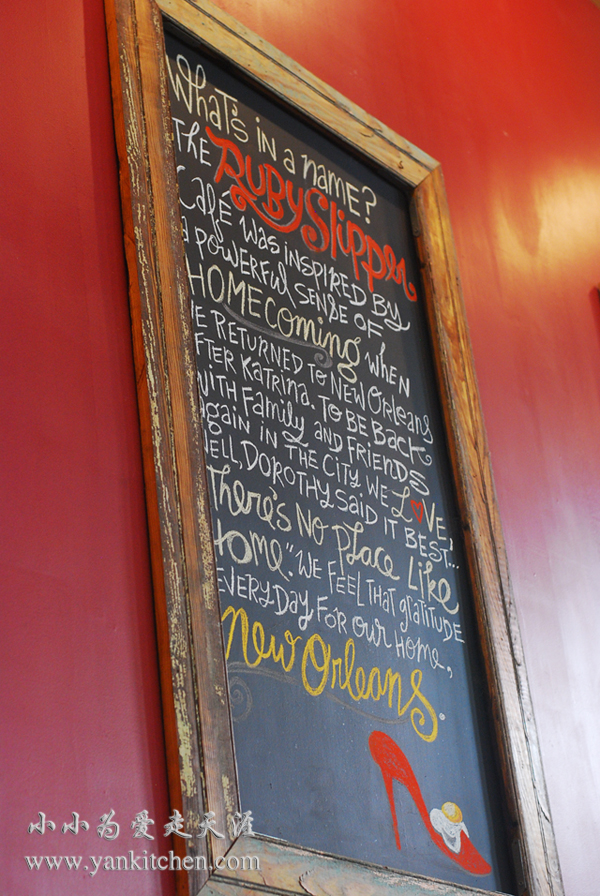 What's in a name?
The Ruby Slipper
Café was inspired by
a powerful sense of
Homecoming when
we returned to New Orleans
after Katrina. To be back
with family and friends
again in the city we love,
well, Dorothy said it best...
There's No Place Like
Home." We feel that gratitude
everyday for our home,
New Orleans.
小小为爱走天涯
www.yankitchen.com